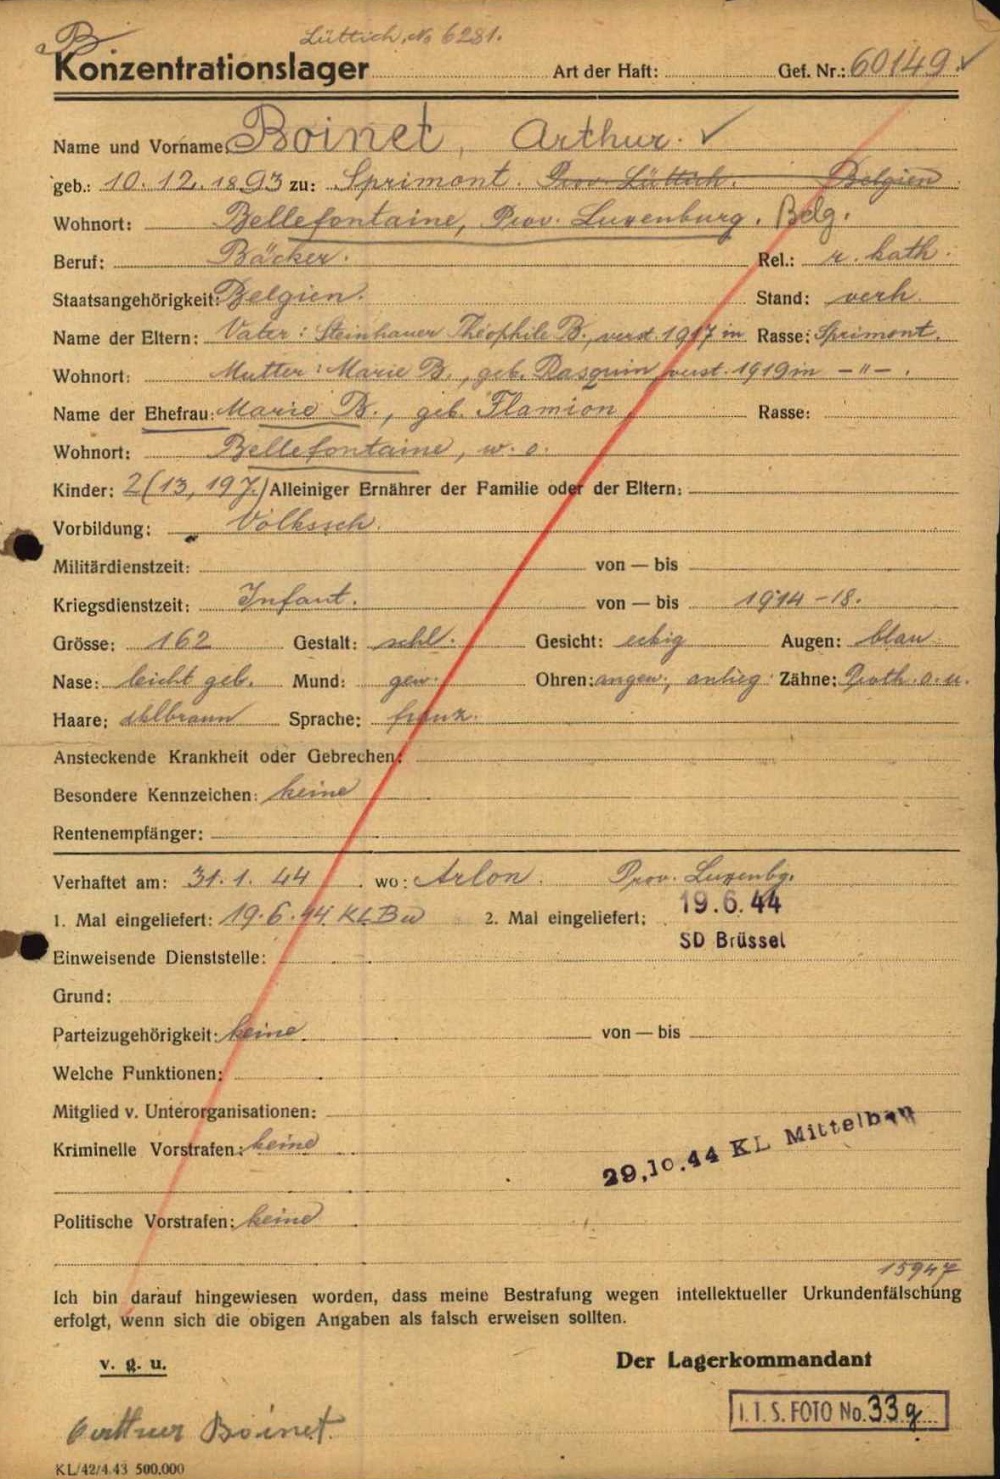 B
Lüttich, No 6281.
Konzentrationslager Art der Haft: Gef. Nr.: 60149 ✓
Name und Vorname: Boinet, Arthur. ✓
geb.: 10.12.1893 zu: Sprimont. Prov. Lüttich. Belgien
Wohnort: Bellefontaine, Prov. Luxenburg. Belg.
Beruf: Bäcker. Rel.: r. kath.
Staatsangehörigkeit: Belgien. Stand: verh.
Name der Eltern: Vater: Steinhauer Théophile B., verst. 1917 in Rasse: Sprimont.
Wohnort: Mutter: Marie B., geb. Rasquin, verst. 1919 in -"- .
Name der Ehefrau: Marie B., geb. Flamion, Rasse:
Wohnort: Bellefontaine, w. o.
Kinder: 2 (13, 19 J.) Alleiniger Ernährer der Familie oder der Eltern:
Vorbildung: Volkssch.
Militärdienstzeit: von — bis
Kriegsdienstzeit: Infant. von — bis 1914-18.
Grösse: 162 Gestalt: schl. Gesicht: eckig Augen: blau
Nase: leicht geb. Mund: gew. Ohren: angew., anlieg. Zähne: Proth. o. u.
Haare: dklbraun Sprache: franz.
Ansteckende Krankheit oder Gebrechen:
Besondere Kennzeichen: keine
Rentenempfänger:
Verhaftet am: 31.1.44 wo: Arlon. Prov. Luxenbg.
1. Mal eingeliefert: 19.6.44 KL.Bu 2. Mal eingeliefert: 19.6.44
SD Brüssel
Einweisende Dienststelle:
Grund:
Parteizugehörigkeit: keine von — bis
Welche Funktionen:
Mitglied v. Unterorganisationen:
Kriminelle Vorstrafen: keine
29.10.44 KL Mittelbau
Politische Vorstrafen: keine
15947
Ich bin darauf hingewiesen worden, dass meine Bestrafung wegen intellektueller Urkundenfälschung
erfolgt, wenn sich die obigen Angaben als falsch erweisen sollten.
v. g. u. Der Lagerkommandant
I.T.S. FOTO No. 33 g
Arthur Boinet.
KL/42/4.43 500.000